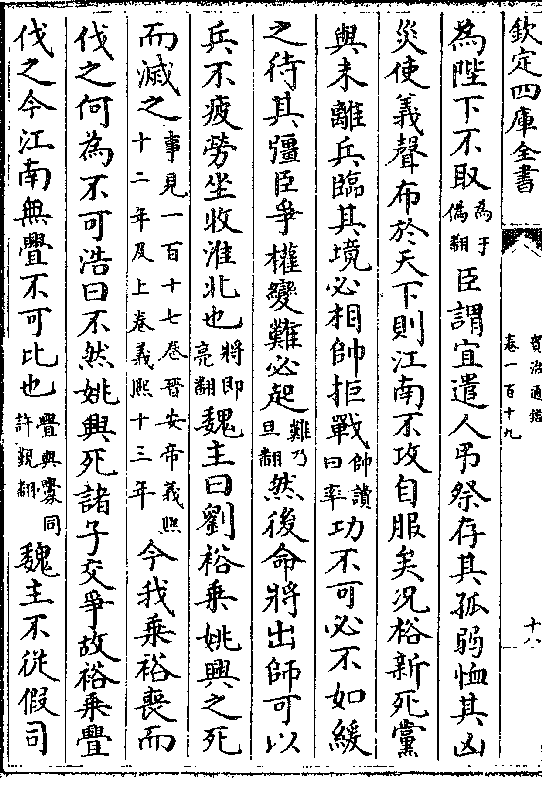 欽定四庫全書
資治通鑑
卷一百十九
十八
為陛下不取為于偽翻臣謂宜遣人弔祭存其孤弱恤其凶
災使義聲布於天下則江南不攻自服矣况裕新死黨
與未離兵臨其境必相帥拒戰帥讀曰率功不可必不如緩
之待其彊臣爭權變難必起難乃旦翻然後命將出師可以
兵不疲勞坐收淮北也將即亮翻魏主曰劉裕乗姚興之死
而滅之事見一百十七卷晉安帝義熙十二年及上卷義熙十三年今我乗裕喪而
伐之何為不可浩曰不然姚興死諸子交爭故裕乗釁
伐之今江南無釁不可比也釁與舋同許覲翻魏主不從假司